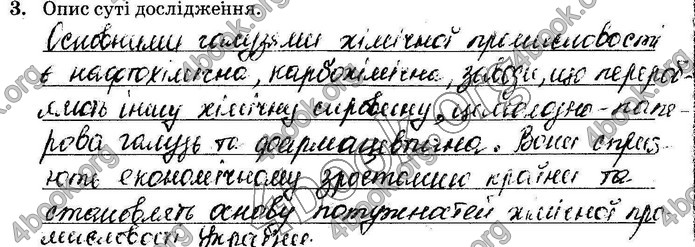 3. Опис суті дослідження.
Основними галузями хімічної промисловості
є нафтохімічна, карбохімічна, заводи, що перероб-
ляють іншу хімічну сировину, целюлозно-папе-
рова галузь та фармацевтична. Вони сприя-
ють економічному зростанню країни та
становлять основу потужностей хімічної про-
мисловості України.
4book.org